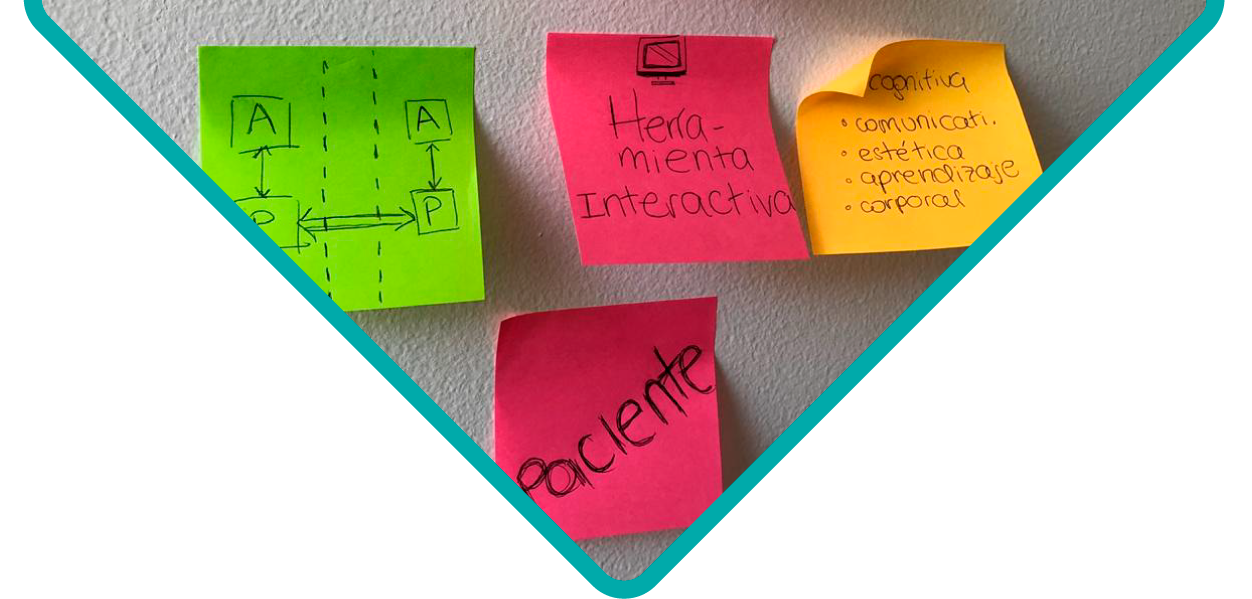 A A
P P
Herra-
mienta
Interactiva
cognitiva
• comunicati.
• estética
• aprendizaje
• corporal
Paciente